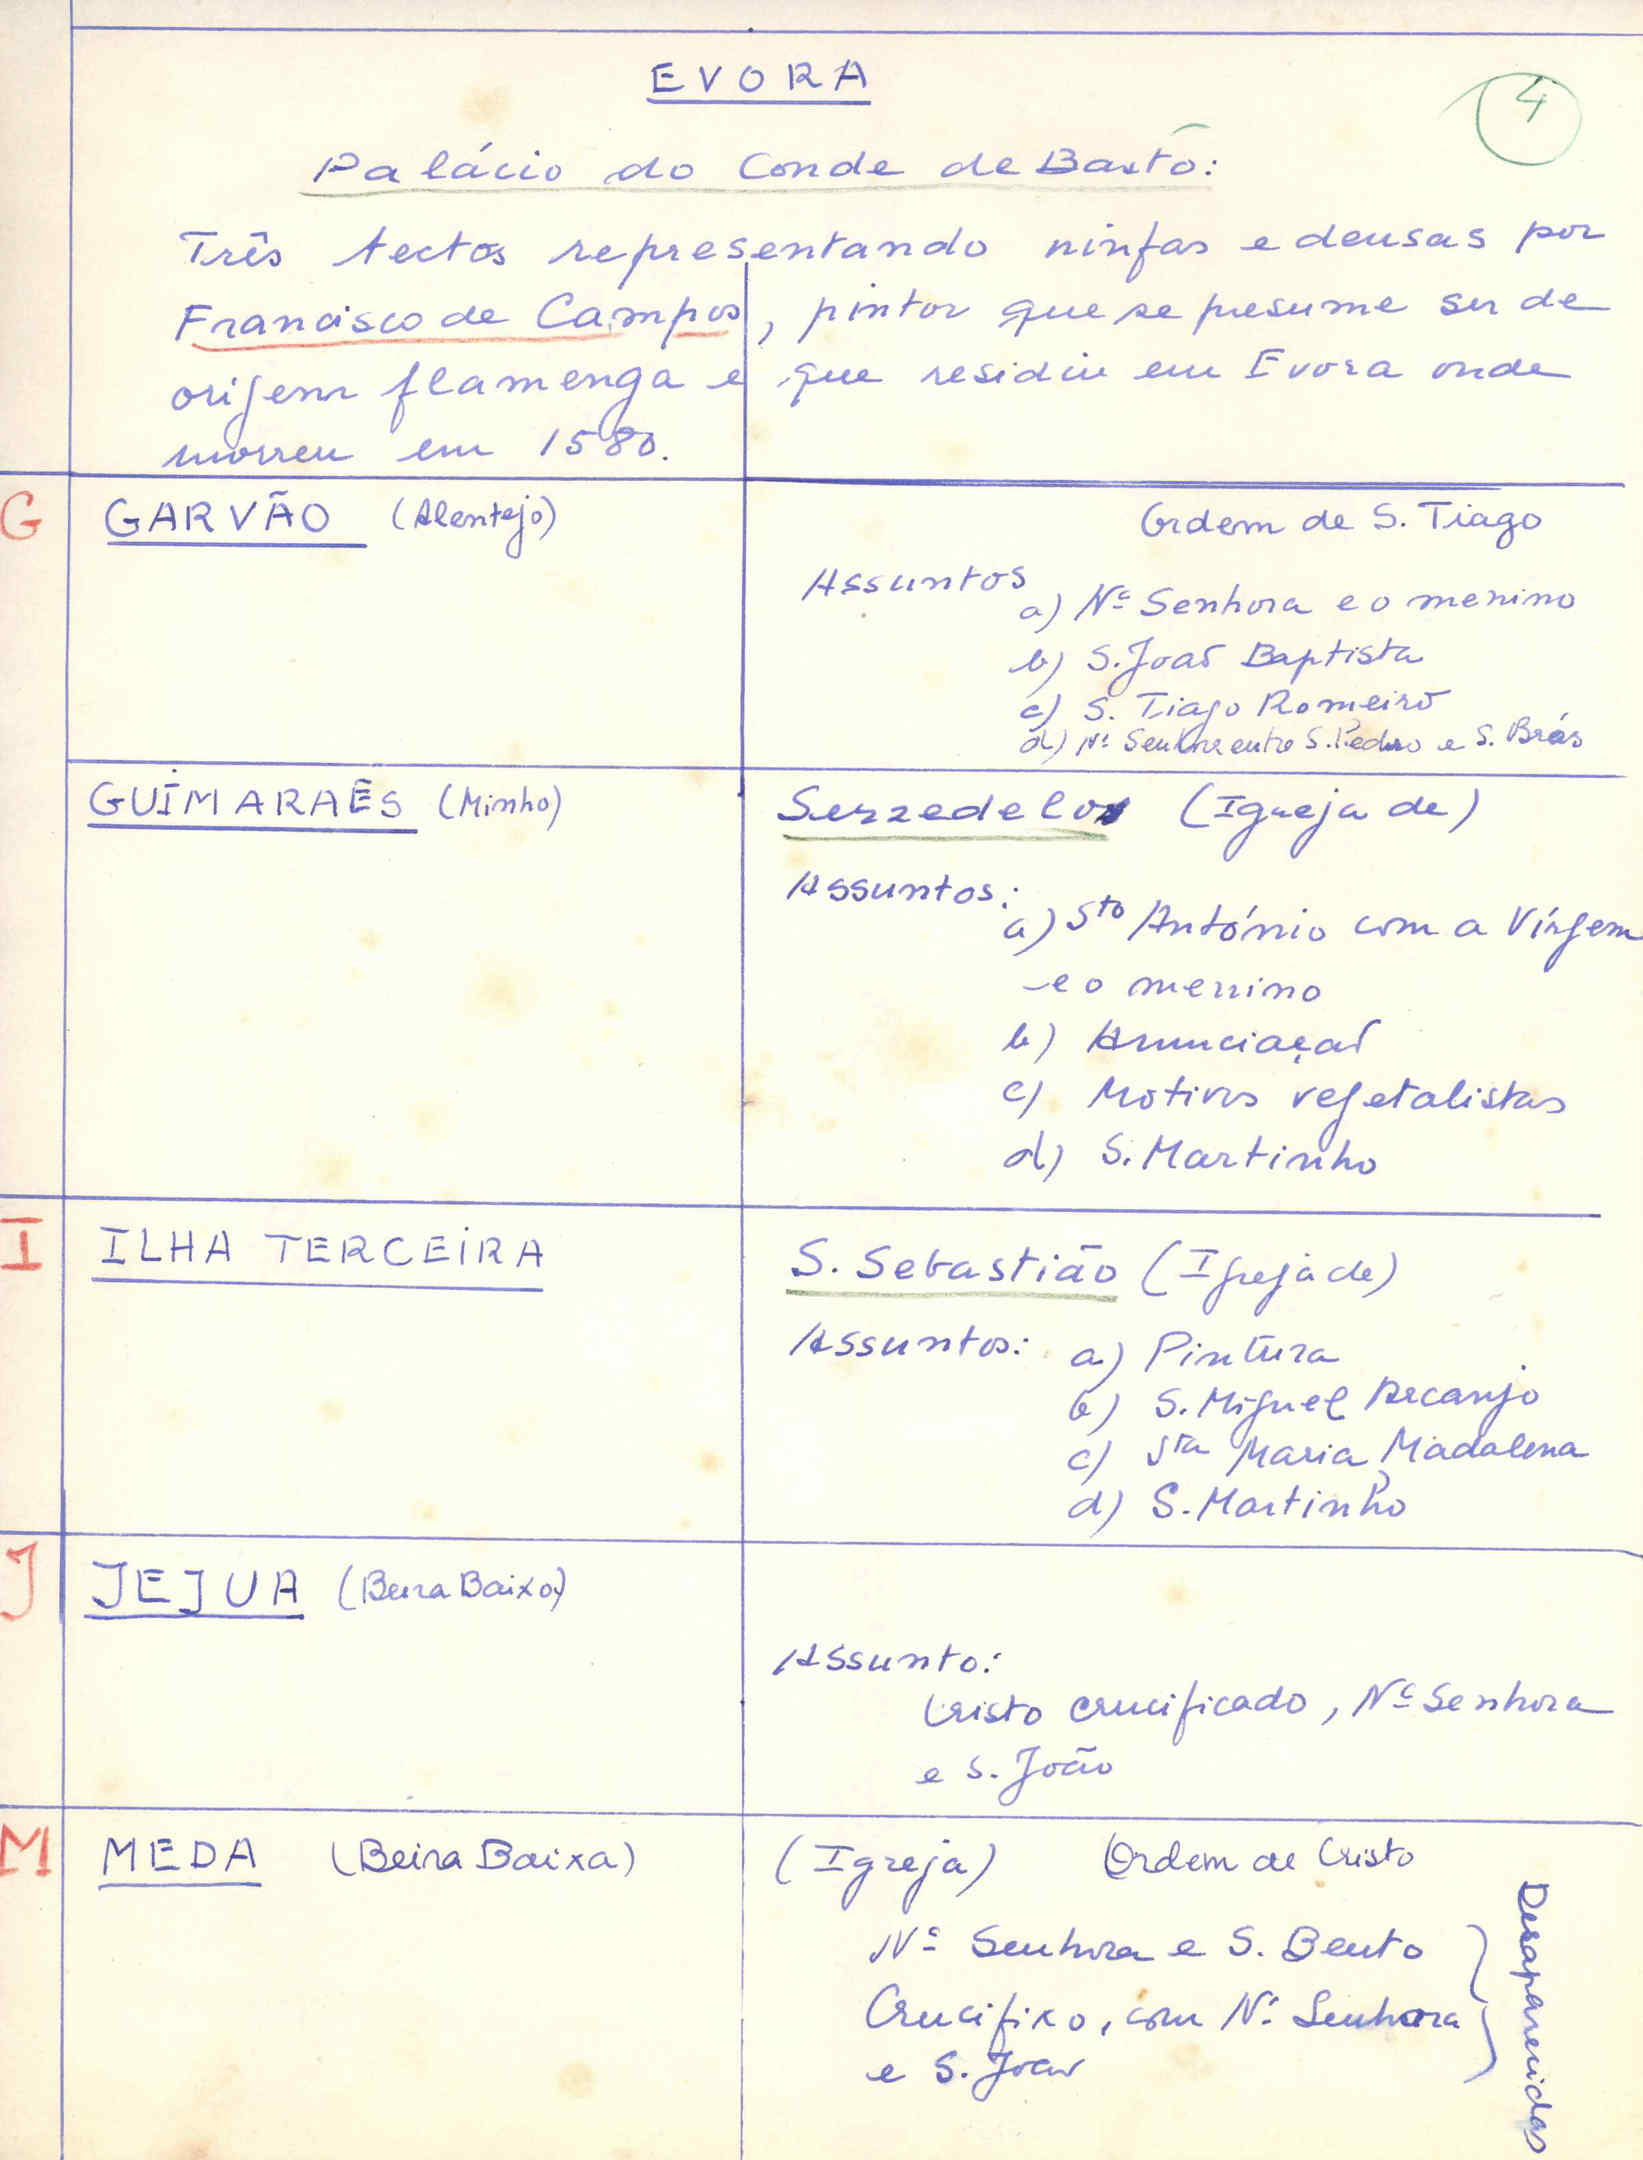 EVORA
4
Palácio do Conde de Basto:
Três tectos representando ninfas e deusas por
Francisco de Campos, pintor que se presume ser de
origem flamenga e que residiu em Evora onde
morreu em 1580.
G
GARVÃO (Alentejo)
Ordem de S. Tiago
Assuntos
a) Nª Senhora e o menino
b) S. João Baptista
c) S. Tiago Romeiro
d) Nª Senhora entre S. Pedro e S. Brás
GUIMARAÊS (Minho)
Serzedelo (Igreja de)
Assuntos:
a) Sto António com a Vírgem
e o menino
b) Anunciação
c) Motivos vegetalistas
d) S. Martinho
I
ILHA TERCEIRA
S. Sebastião (Igreja de)
Assuntos: a) Pintura
b) S. Miguel Arcanjo
c) Sta Maria Madalena
d) S. Martinho
J
JEJUA (Beira Baixa)
Assunto:
Cristo crucificado, Nª Senhora
e S. João
M
MEDA (Beira Baixa)
(Igreja) Ordem de Cristo
Nª Senhora e S. Bento
Crucifixo, com Nª Senhora
e S. João
Desaparecidas